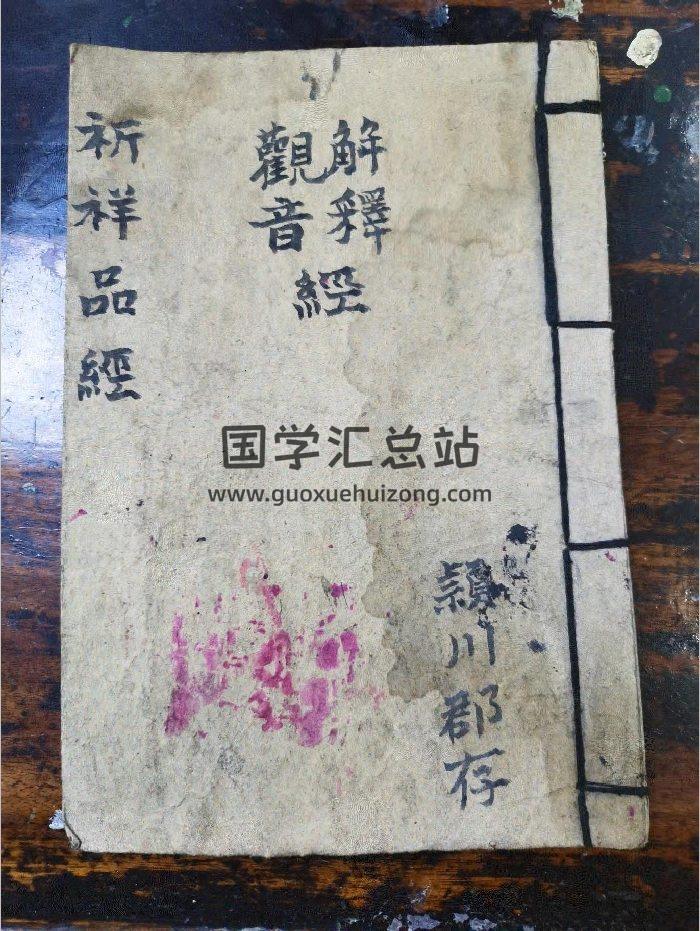 解釋
觀音
經
祈祥品經
潁川郡存
国学汇总站
www.guoxuehuizong.com